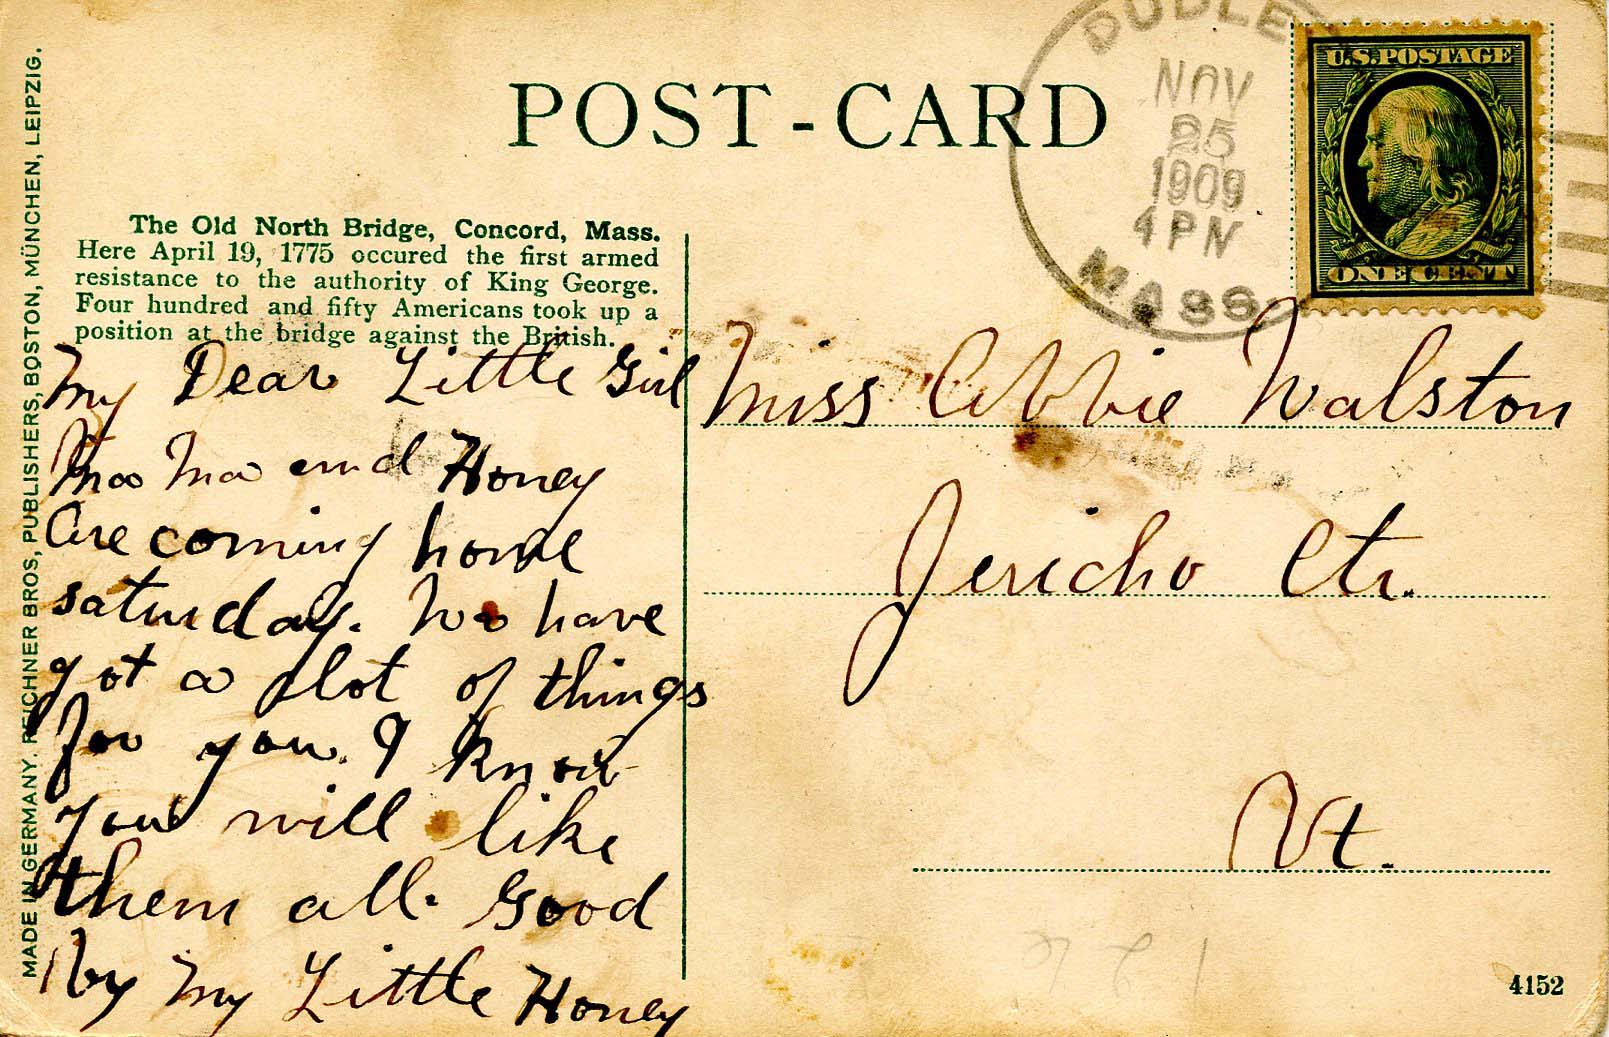 POST-CARD
DUDLE
NOV
25
1909
4 PM
MASS.
U.S. POSTAGE
ONE CENT
MADE IN GERMANY. REICHNER BROS, PUBLISHERS, BOSTON, MÜNCHEN, LEIPZIG.
The Old North Bridge, Concord, Mass.
Here April 19, 1775 occured the first armed
resistance to the authority of King George.
Four hundred and fifty Americans took up a
position at the bridge against the British.
My Dear Little Girl
Ma Ma and Honey
Are coming home
saturday. We have
got a lot of things
for you. I know
you will like
them all. Good
by my Little Honey
Miss Abbie Walston
Jericho Ctr.
Vt.
4152